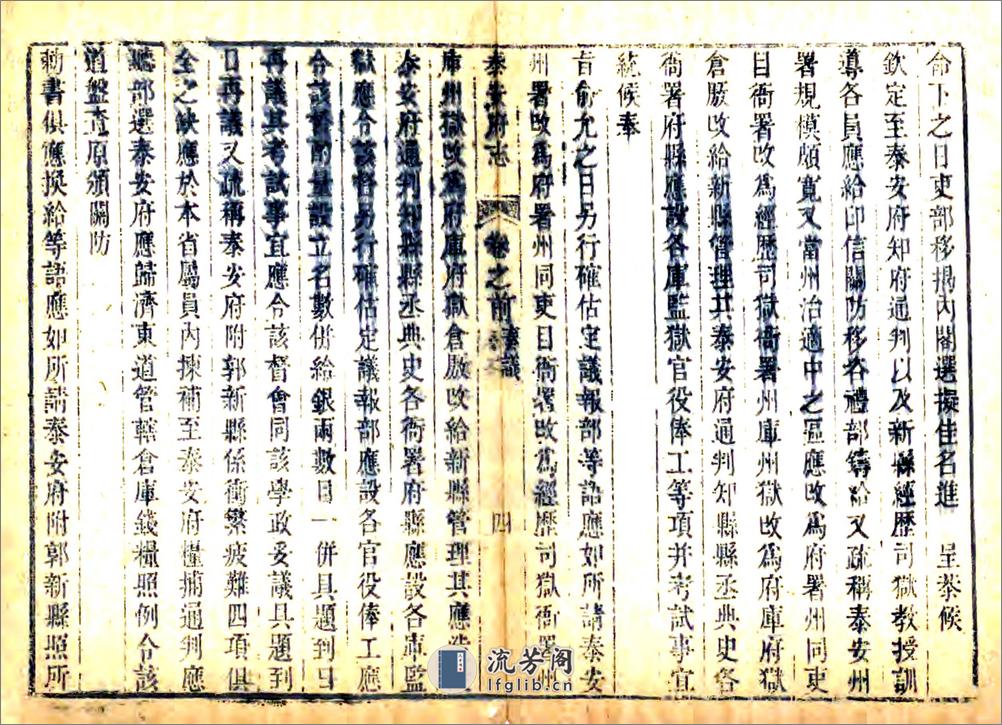 命下之日吏部移揭內閣選擬佳名進　呈恭候
欽定至泰安府知府通判以及新縣經歷司獄教授訓
導各員應給印信關防移咨禮部鑄給又疏稱泰安州
署規模頗寬又當州治適中之區應改爲府署州同吏
目衙署改爲經歷司獄衙署州庫州獄改爲府庫府獄
倉厫改給新縣管理其泰安府通判知縣縣丞典史各
衙署府縣應設各庫監獄官役俸工等項并考試事宜
統候奉
旨俞允之日另行確估定議報部等語應如所請泰安
州署改爲府署州同吏目衙署改爲經歷司獄衙署州
泰安府志　卷之前　議　四
庫州獄改爲府庫府獄倉厫改給新縣管理其應造
泰安府通判知縣縣丞典史各衙署府縣應設各庫監
獄應令該督另行確估定議報部應設各官役俸工應
令該督酌量設立名數併給銀兩數目一併具題到日
再議其考試事宜應令該督會同該學政妥議具題到
日再議又疏稱泰安府附郭新縣係衝繁疲難四項俱
全之缺應於本省屬員內揀補至泰安府糧捕通判應
聽部選泰安府應歸濟東道管轄倉庫錢糧照例令該
道盤查原頒關防
勅書俱應換給等語應如所請泰安府附郭新縣照所
流芳阁
lfglib.cn